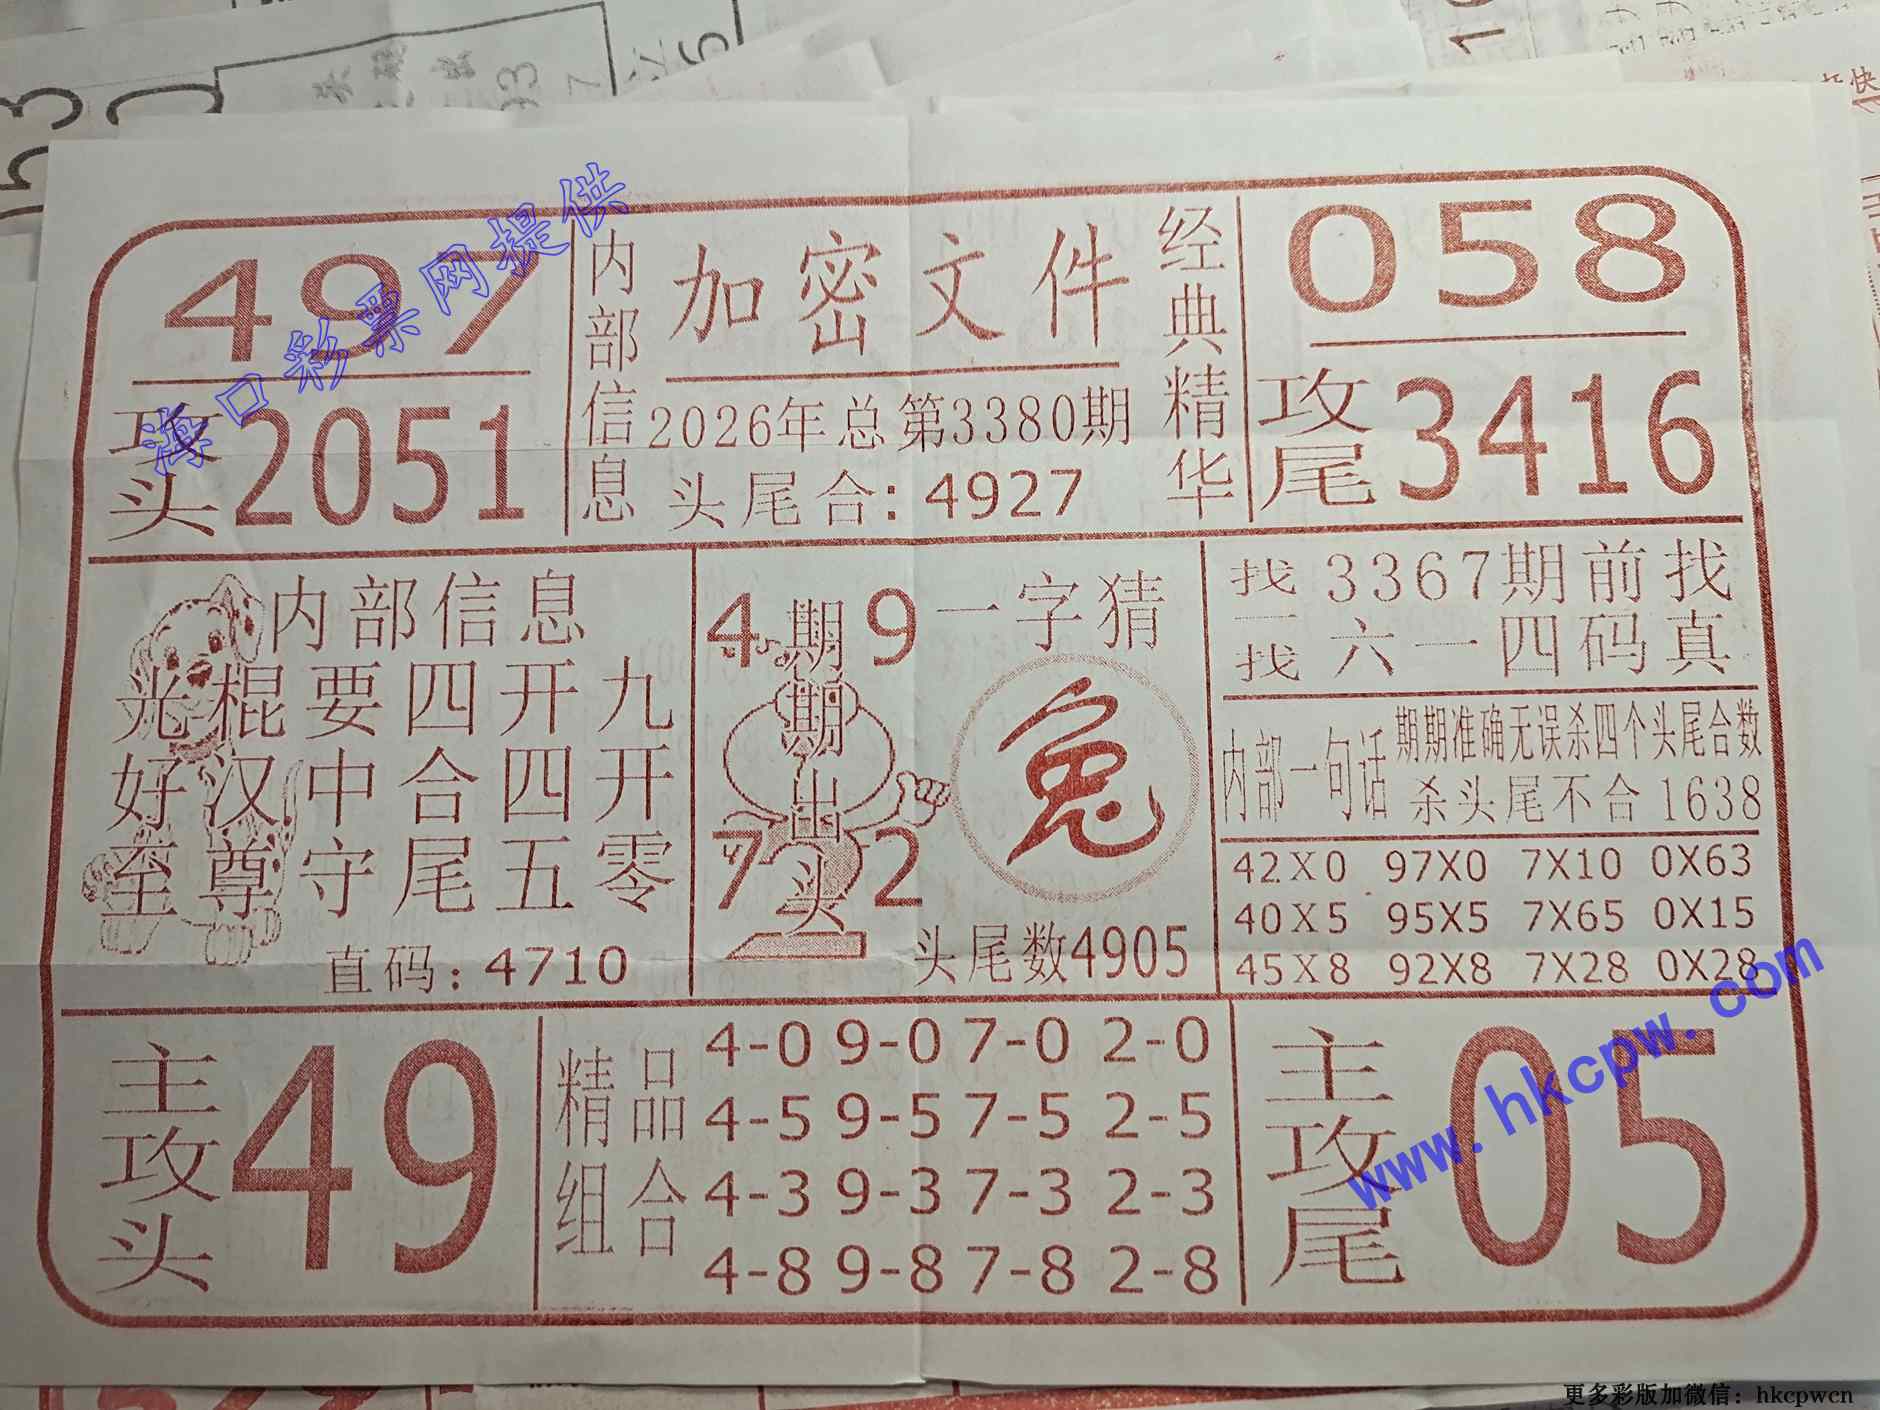 497
攻头2051
内部信息
加密文件
2026年总第3380期
头尾合:4927
经典精华
058
攻尾3416
内部信息
光棍要四开九
好汉中合四开
至尊守尾五零
直码:4710
4 9
期期出头
7 2
一字猜
兔
头尾数4905
找一找
3367期前找
六一四码真
内部一句话
期期准确无误杀四个头尾合数
杀头尾不合1638
42X0 97X0 7X10 0X63
40X5 95X5 7X65 0X15
45X8 92X8 7X28 0X28
主攻头
49
精品组合
4-0 9-0 7-0 2-0
4-5 9-5 7-5 2-5
4-3 9-3 7-3 2-3
4-8 9-8 7-8 2-8
主攻尾
05
海口彩票网提供
www.hkcpw.com
更多彩版加微信：hkcpwcn